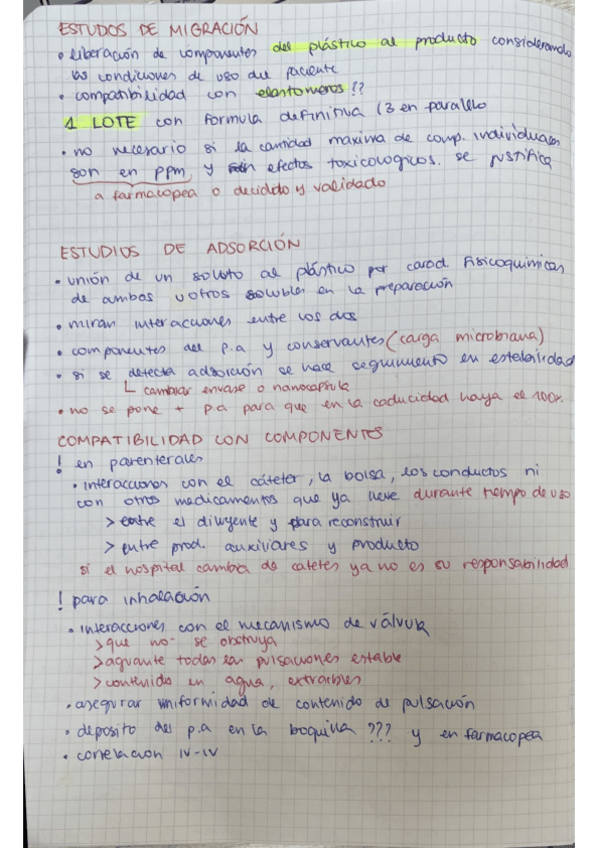 ESTUDOS DE MIGRACIÓN
• liberación de componentes del plástico al producto considerando
las condiciones de uso del paciente
• compatibilidad con elastomeros??
1 LOTE con formula definitiva (3 en paralelo
• no necesario si la cantidad maxima de comp. individuales
son en ppm y efectos toxicologicos. se justifica
a farmacopea o decidido y validado
ESTUDIOS DE ADSORCIÓN
• unión de un soluto al plástico por caract. Fisicoquimicas
de ambos u otros solubles en la preparación
• miran interacciones entre los dos
• componentes del p.a y conservantes (carga microbiana)
• si se detecta adsorción se hace seguimiento en estabilidad
cambiar envase o nanocapsula
• no se pone + p.a para que en la caducidad haya el 100%.
COMPATIBILIDAD CON COMPONENTES
! en parenterales
• interacciones con el cáteter, la bolsa, los conductos ni
con otros medicamentos que ya lleve durante tiempo de uso
> entre el diluyente y para reconstruir
> entre prod. auxiliares y producto
si el hospital cambia de cateter ya no es su responsabilidad
! para inhalación
• interacciones con el mecanismo de válvula
> que no se obstruya
> aguante todas las pulsaciones estable
> contenido en agua, extraibles
• asegurar uniformidad de contenido de pulsación
• deposito del p.a en la boquilla ??? y en farmacopea
• correlacion IV-IV